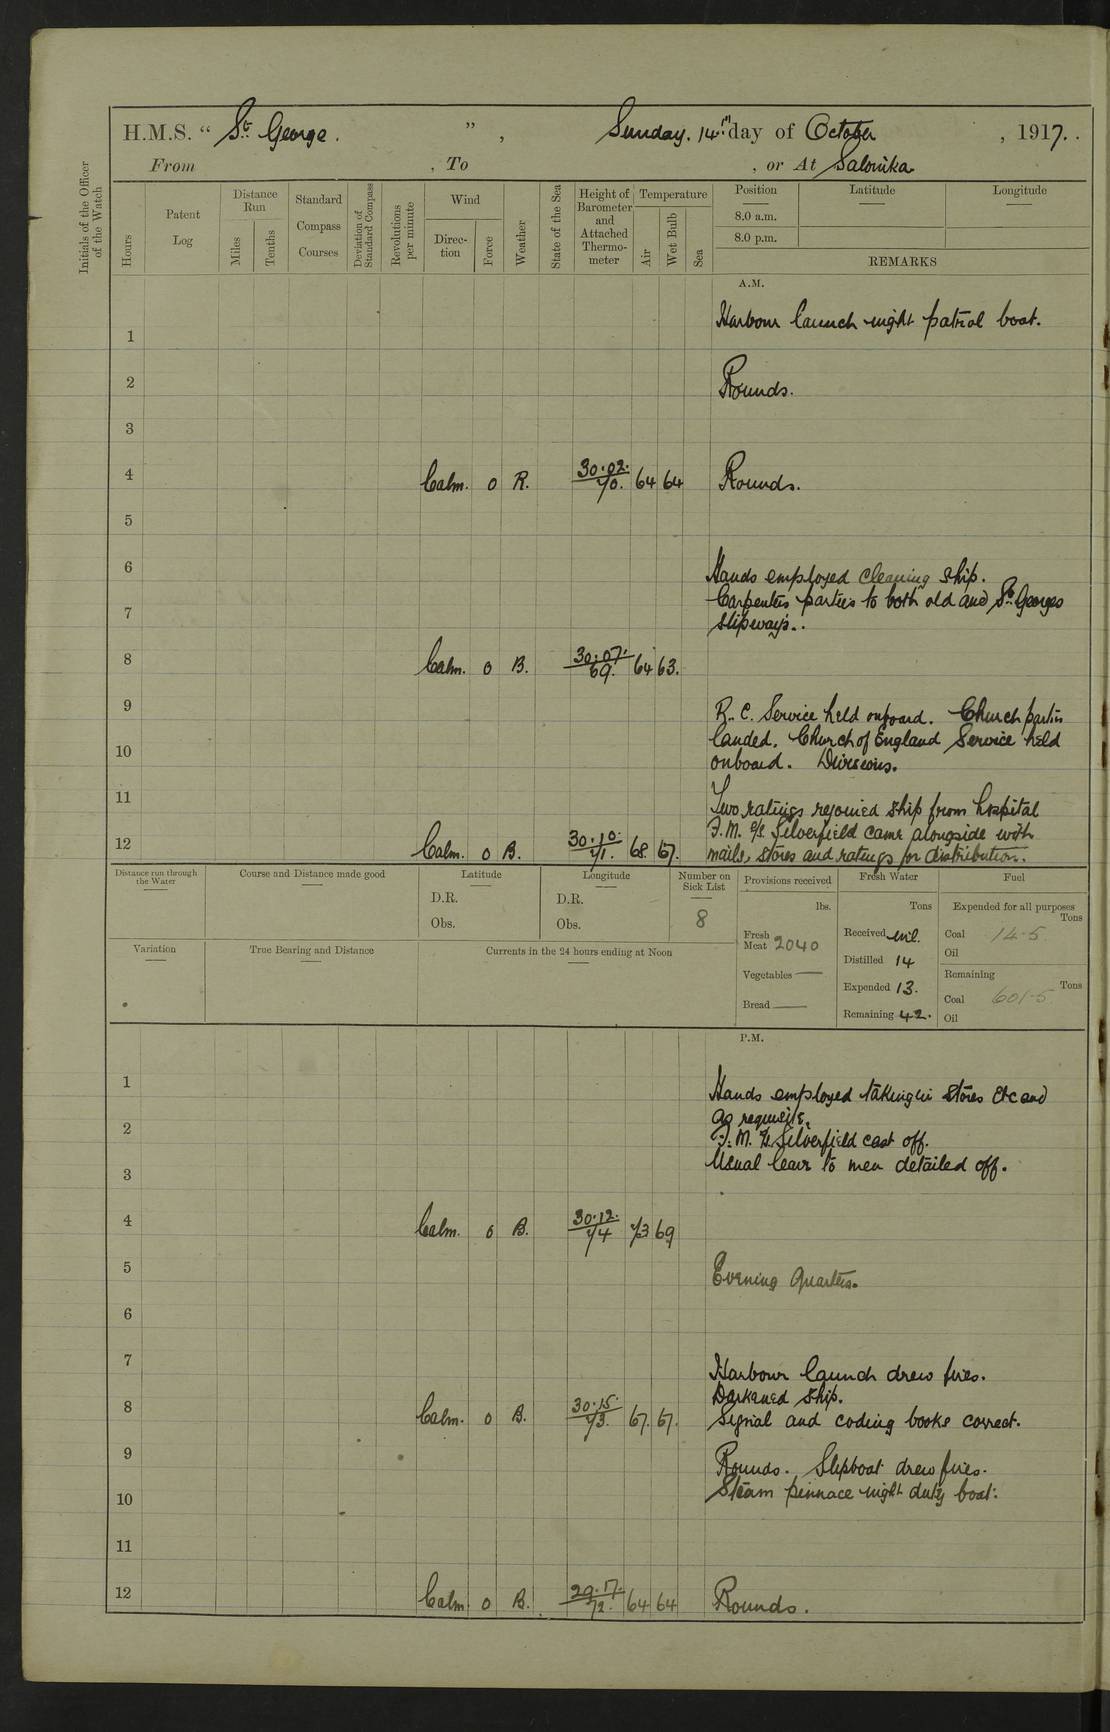 H.M.S. “ St. George. ” , Sunday. 14th day of October , 1917. .
From , To , or At Salonika
Initials of the Officer of the Watch
Hours
Patent Log
Distance Run
Miles
Tenths
Standard Compass Courses
Deviation of Standard Compass
Revolutions per minute
Wind
Direc-tion
Force
Weather
State of the Sea
Height of Barometer and Attached Thermo-meter
Temperature
Air
Wet Bulb
Sea
Position Latitude Longitude
8.0 a.m.
8.0 p.m.
REMARKS
A.M.
Harbour launch night patrol boat.
1
2 Rounds.
3
4 Calm. 0 R. 30.02. 70. 64 64 Rounds.
5
6 Hands employed cleaning ship.
Carpenters parties to both old and St. Georges
7 slipways..
8 Calm. 0 B. 30.07. 69. 64 63.
9 R.. C. Service held onboard. Church parties
landed. Church of England Service held
10 onboard. Divisions.
11 Two ratings rejoined ship from hospital
F.M. S/S. Silverfield came alongside with
12 Calm. 0 B. 30.10. 71. 68. 67. mails, stores and ratings for distribution.
Distance run through the Water
Course and Distance made good
Latitude
D.R.
Obs.
Longitude
D.R.
Obs.
Number on Sick List
8
Provisions received
lbs.
Fresh Meat 2040
Vegetables —
Bread —
Fresh Water
Tons
Received nil.
Distilled 14
Expended 13.
Remaining 42.
Fuel
Expended for all purposes
Tons
Coal 14.5
Oil
Remaining
Tons
Coal 601.5
Oil
Variation
True Bearing and Distance
Currents in the 24 hours ending at Noon
P.M.
1 Hands employed taking in stores etc and
as requisite.
2 F. M. S/S. Silverfield cast off.
3 Usual leave to men detailed off.
4 Calm. 0 B. 30.12. 74 73 69
5 Evening Quarters.
6
7 Harbour launch drew fires.
Darkened ship.
8 Calm. 0 B. 30.15. 73. 67. 67. Signal and coding books correct.
9 Rounds. Slipboat drew fires.
10 Steam pinnace night duty boat.
11
12 Calm 0 B. 29.17. 72. 64 64 Rounds.